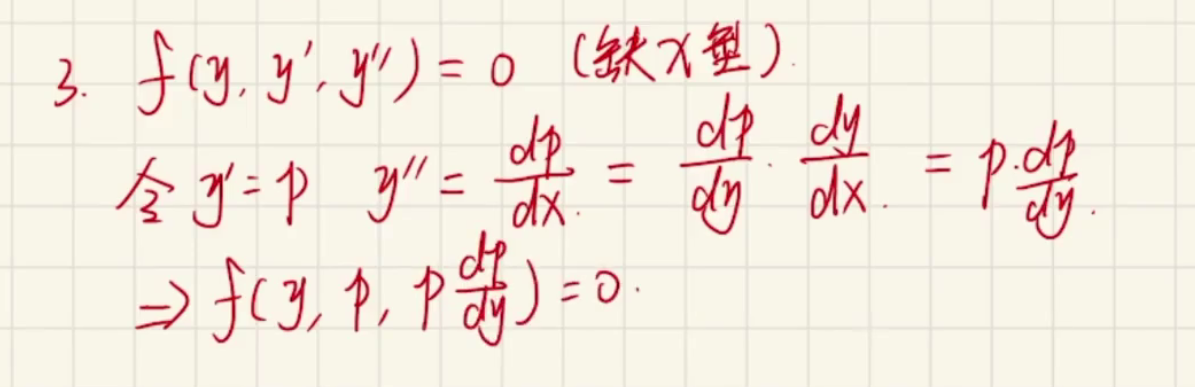 3. f(y, y', y'') = 0 (缺x型).
令 y' = p y'' = dp/dx = dp/dy · dy/dx = p·dp/dy.
⇒ f(y, p, p dp/dy) = 0.